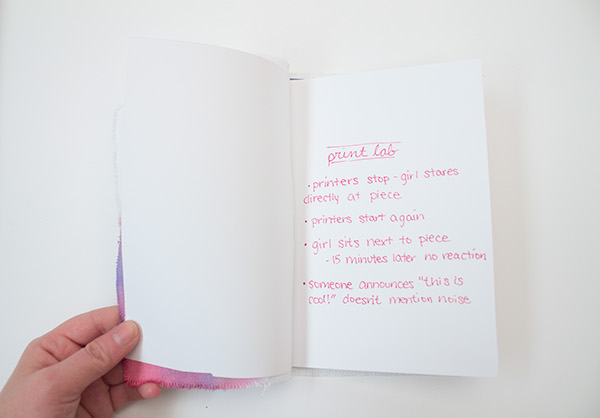 print lab
• printers stop - girl stares
directly at piece
• printers start again
• girl sits next to piece
- 15 minutes later no reaction
• someone announces "this is
cool!" doesn't mention noise